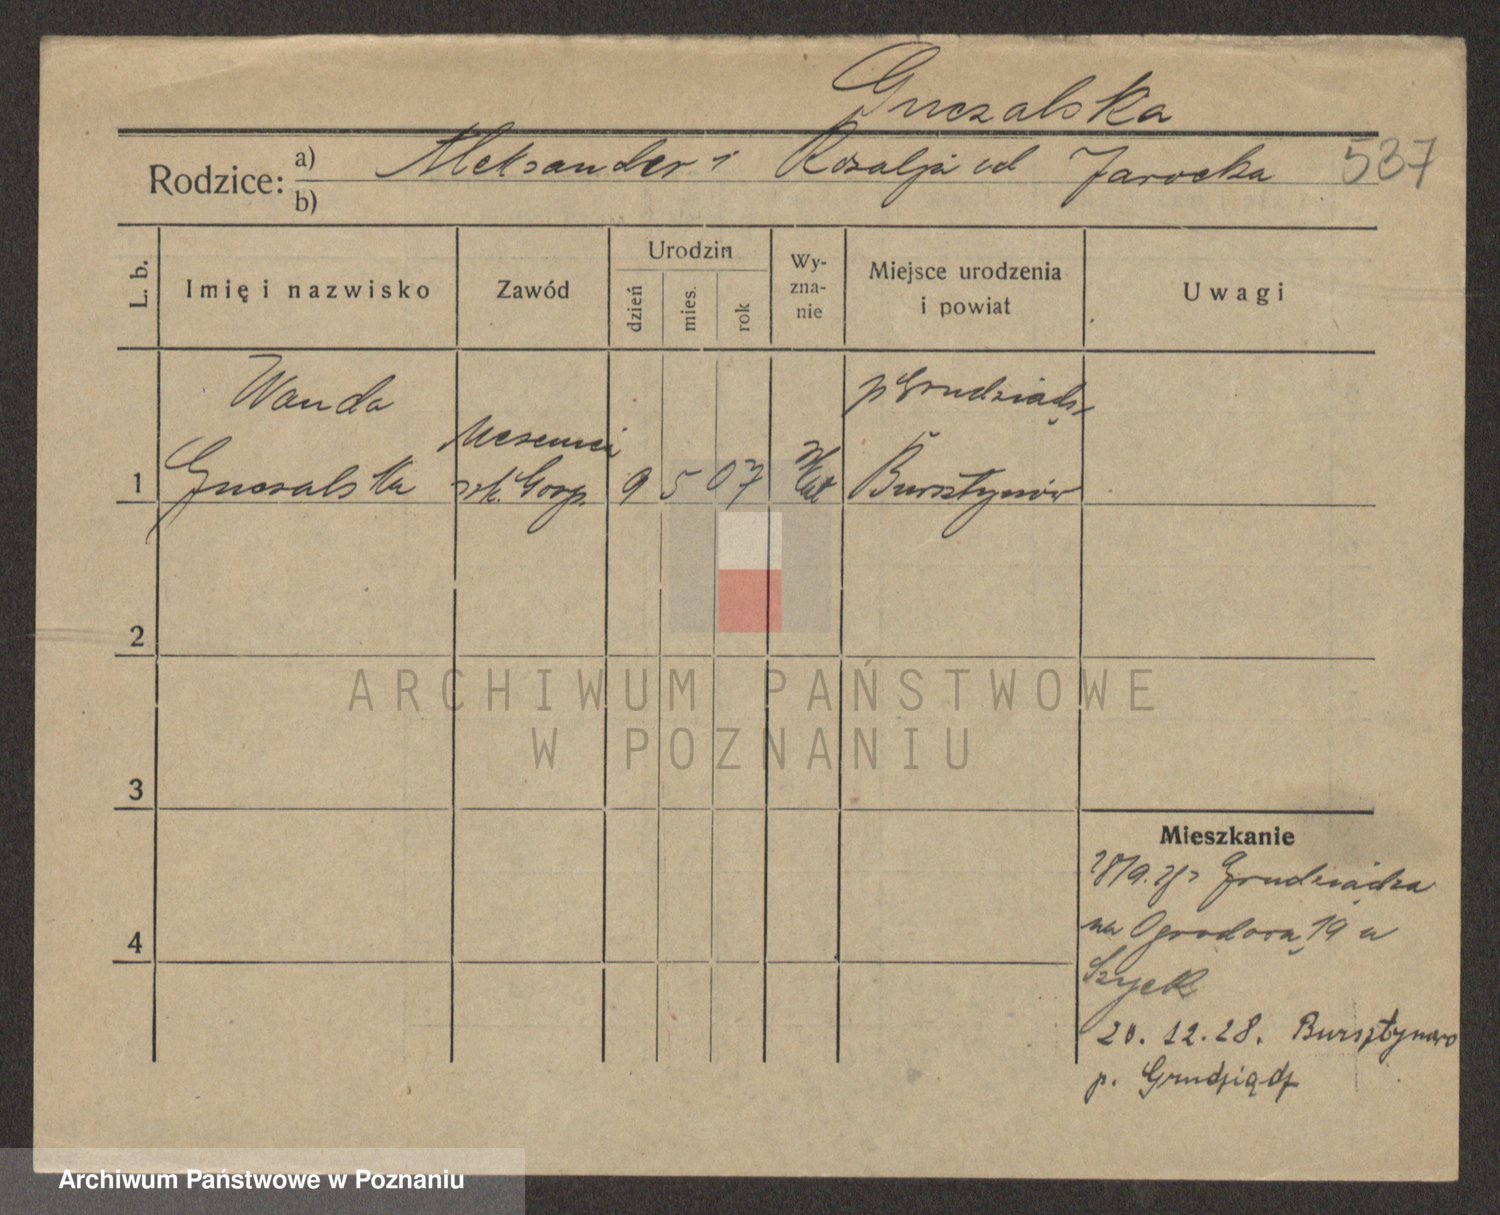 Guczalska
537
Rodzice: a) Aleksander i Rozalja od Jarocka
b)
L. b.
Imię i nazwisko
Zawód
Urodzin
dzień
mies.
rok
Wy-
zna-
nie
Miejsce urodzenia
i powiat
Uwagi
Wanda
Guczalska
Uczenica
szk. Gosp.
9 5 07
Kat
p Grudziądz
Bursztynów
1
2
3
4
ARCHIWUM PAŃSTWOWE
W POZNANIU
Mieszkanie
Grudziądza
na Ogrodowa 19 u
Szyck
20. 12. 28. Bursztynowo
p. Grudziądz
Archiwum Państwowe w Poznaniu